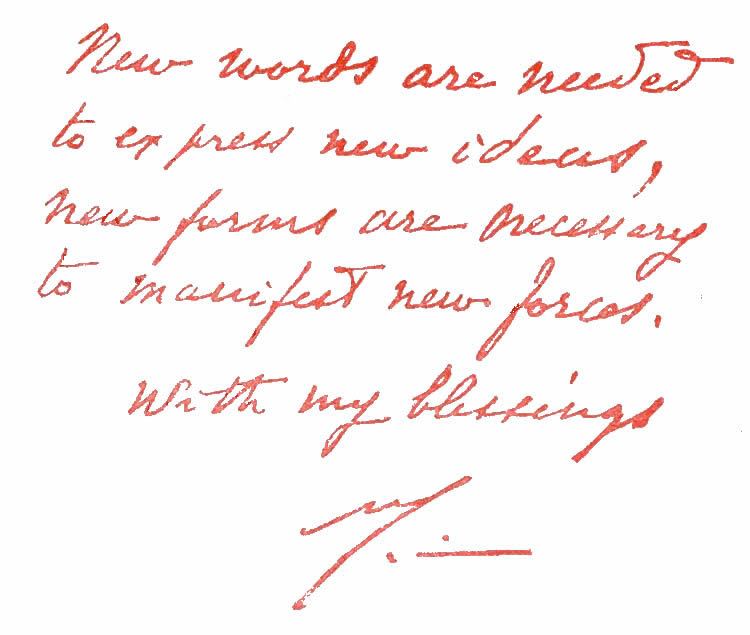 New words are needed
to express new ideas,
new forms are necessary
to manifest new forces.
With my blessings